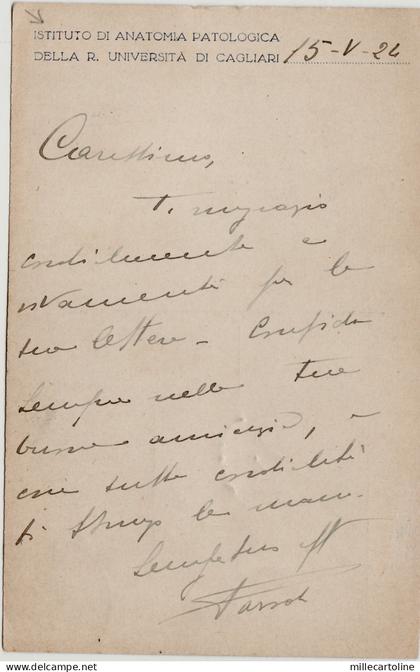 ISTITUTO DI ANATOMIA PATOLOGICA
DELLA R. UNIVERSITÀ DI CAGLIARI 15-V-24
Carissimo,
Ti ringrazio
cordialmente e
vivamente per la
tua lettera - Confido
sempre nella tua
buona amicizia, e
con tutta cordialità
ti stringo la mano.
Sempre tuo
millecartoline.com
millecartoline.com